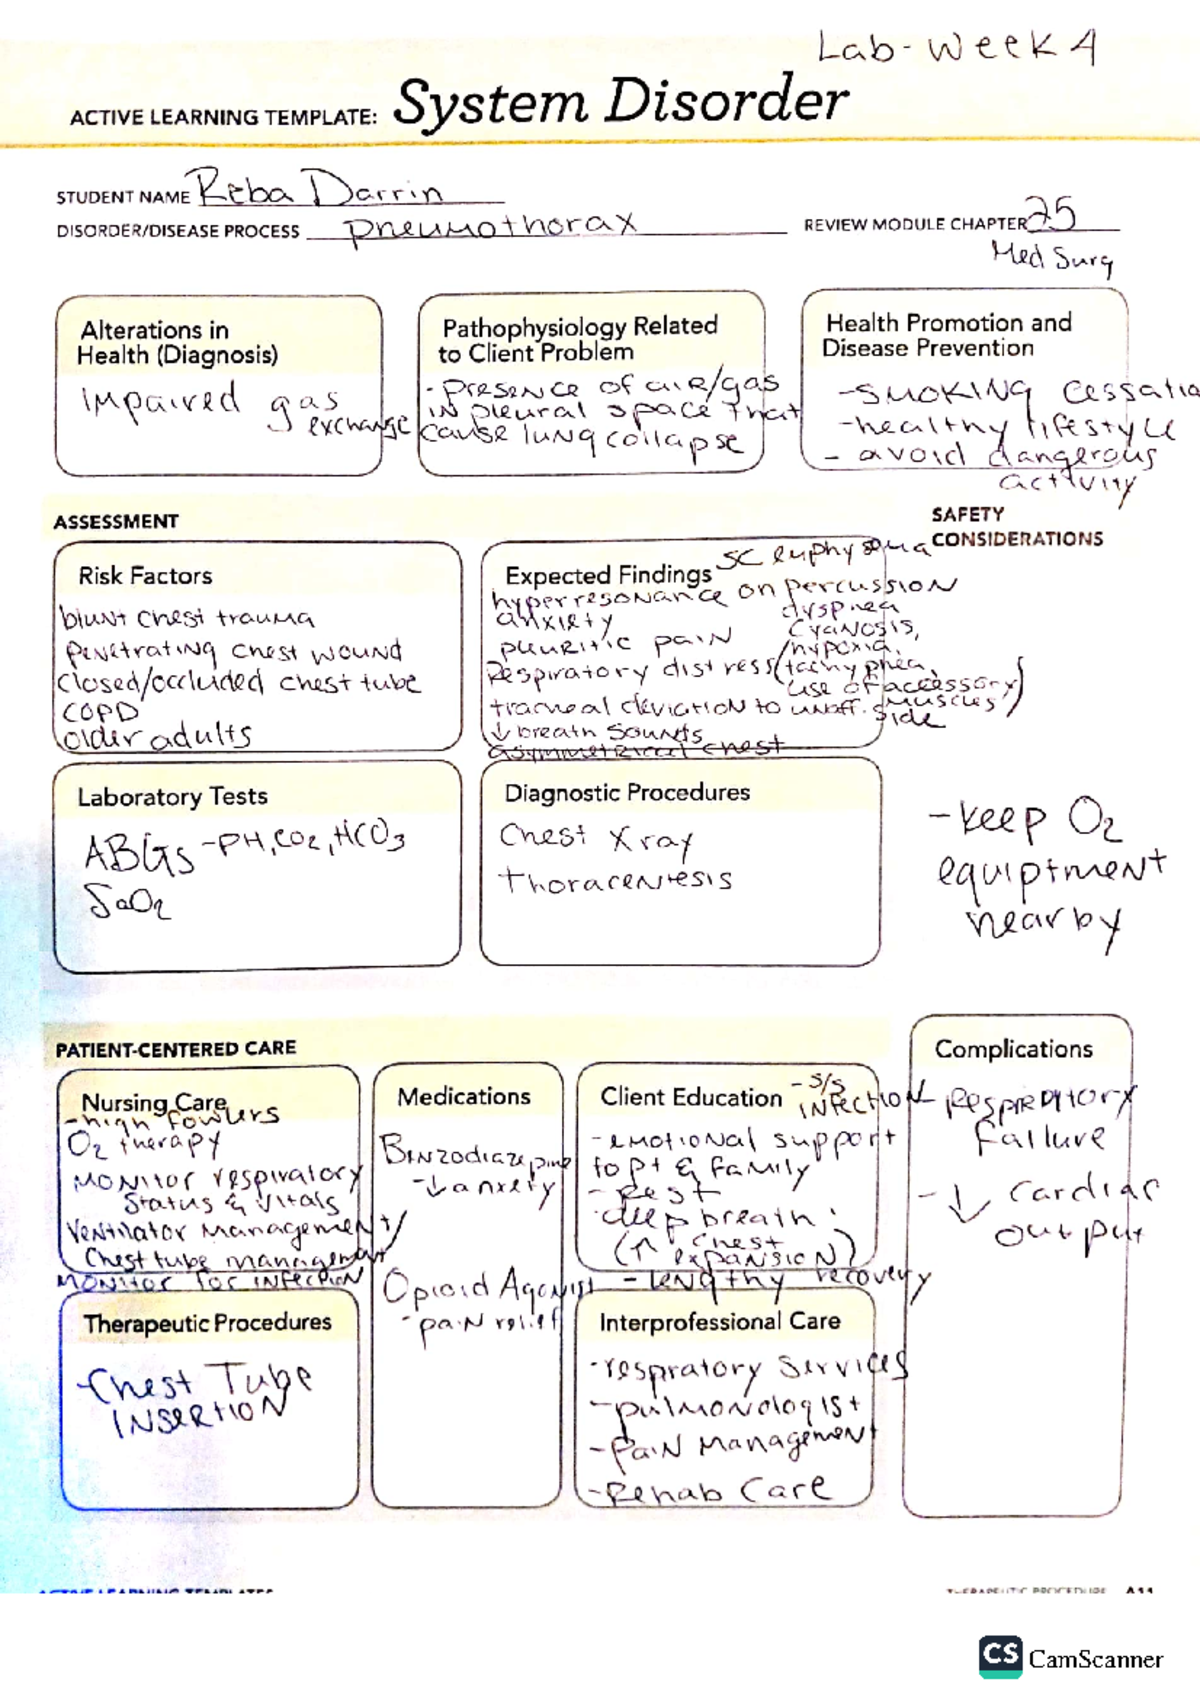 Lab-Week 4
ACTIVE LEARNING TEMPLATE: System Disorder
STUDENT NAME Reba Darrin
DISORDER/DISEASE PROCESS pneumothorax
REVIEW MODULE CHAPTER 25
Med Surg
Alterations in
Health (Diagnosis)
Impaired gas
exchange
Pathophysiology Related
to Client Problem
- presence of air/gas
in pleural space that
cause lung collapse
Health Promotion and
Disease Prevention
- smoking cessatio
- healthy lifestyle
- avoid dangerous
activity
ASSESSMENT
SAFETY
CONSIDERATIONS
Risk Factors
blunt chest trauma
penetrating chest wound
closed/occluded chest tube
COPD
older adults
Expected Findings
SC emphysema
hyperresonance on percussion
anxiety
dyspnea
pleuritic pain
cyanosis,
hypoxia,
Respiratory distress (tachypnea,
use of accessory
muscles)
tracheal deviation to unaff. side
↓ breath sounds
asymmetrical chest
Laboratory Tests
ABGs - PH, CO2, HCO3
SaO2
Diagnostic Procedures
Chest X ray
thoracentesis
- keep O2
equiptment
nearby
PATIENT-CENTERED CARE
Nursing Care
- high fowlers
O2 therapy
Monitor respiratory
status & vitals
Ventilator management/
Chest tube management
monitor for infection
Medications
Benzodiazepine
- ↓ anxiety
Opioid Agonist
- pain relief
Client Education
- s/s
infection
- emotional support
to pt & family
- Rest
- deep breath
(↑ chest
expansion)
- lengthy recovery
Complications
Respiratory
failure
- ↓ cardiac
output
Therapeutic Procedures
- Chest Tube
Insertion
Interprofessional Care
- respratory services
- pulmonologist
- pain management
- Rehab Care
ACTIVE LEARNING TEMPLATES
THERAPEUTIC PROCEDURE A11
CS CamScanner